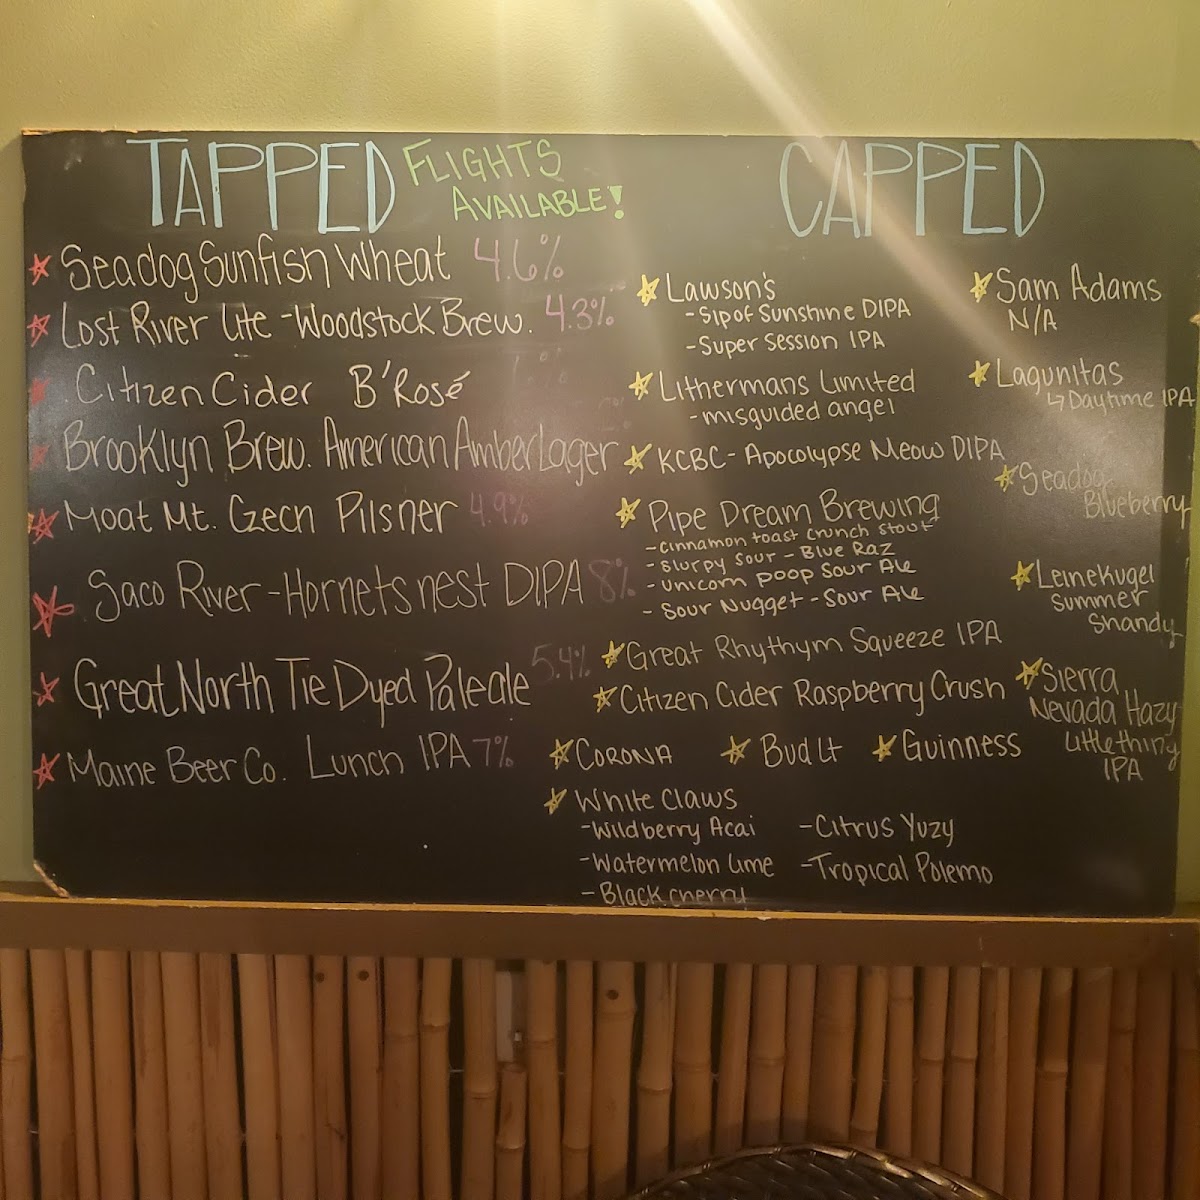 TAPPED
FLIGHTS
AVAILABLE!
Seadog Sunfish Wheat 4.6%
Lost River Lite - Woodstock Brew. 4.3%
Citizen Cider B'Rosé
Brooklyn Brew. American Amber Lager
Moat Mt. Czech Pilsner 4.9%
Saco River - Hornets nest DIPA 8%
Great North Tie Dyed Pale ale 5.4%
Maine Beer Co. Lunch IPA 7%
CAPPED
Lawson's
- Sip of Sunshine DIPA
- Super Session IPA
Lithermans Limited
- misguided angel
KCBC - Apocolypse Meow DIPA
Pipe Dream Brewing
- cinnamon toast crunch stout
- Slurpy Sour - Blue Raz
- Unicorn poop Sour Ale
- Sour Nugget - Sour Ale
Great Rhythym Squeeze IPA
Citizen Cider Raspberry Crush
Corona
Bud Lt
Guinness
White Claws
- Wildberry Acai
- Watermelon Lime
- Black cherry
- Citrus Yuzy
- Tropical Polemo
Sam Adams
N/A
Lagunitas
↳ Daytime IPA
Seadog
Blueberry
Leinekugel
Summer
Shandy
Sierra
Nevada Hazy
Little thing
IPA